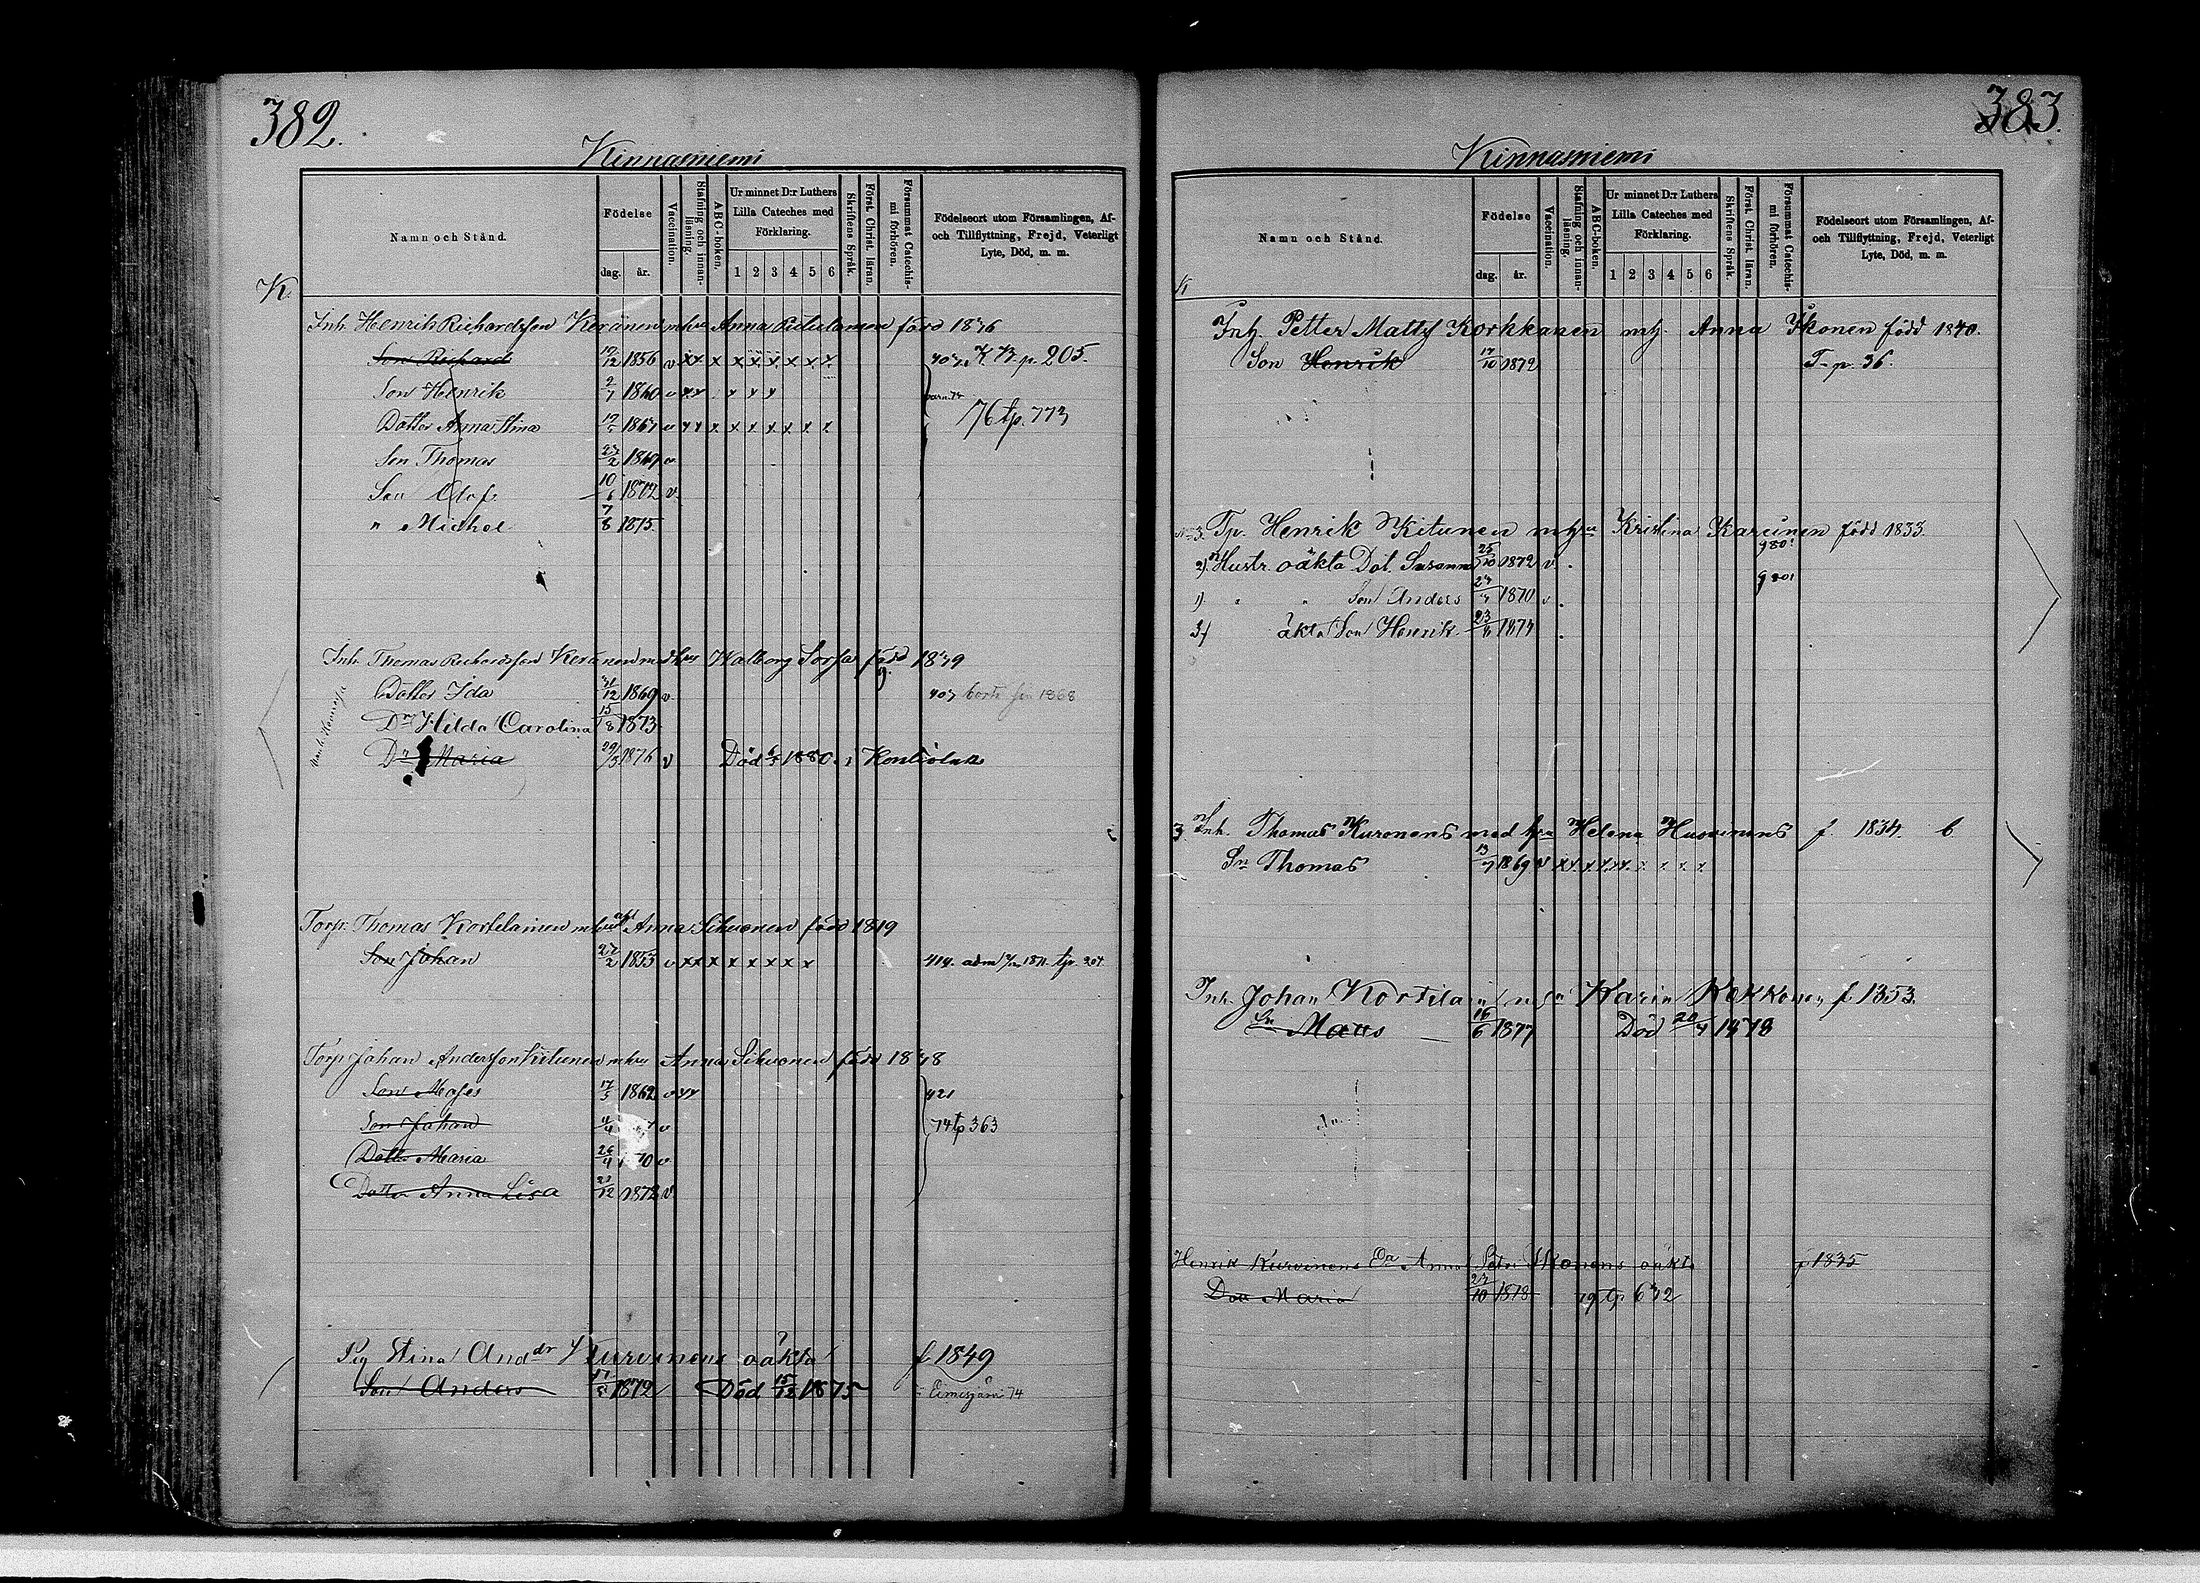 382.
Kinnasniemi
Namn och Stånd.
Födelse
dag. år.
Vaccination.
Stafning och innanläsning.
ABC-boken.
Ur minnet D:r Luthers Lilla Cateches med Förklaring.
1 2 3 4 5 6
Skriftens Språk.
Först. Christ. läran.
Försummat Catechismi förhören.
Födelseort utom Församlingen, Af- och Tillflyttning, Frejd, Veterligt Lyte, Död, m. m.
K
Inh. Henrik Richardsson Keränen mhu Anna född 1836
Son Richard 12 1856 v xx x x x x x x x K B. p. 205.
Son Henrik 2/7 1860 v xx x x x
76 tp. 773
Dotter Anna Stina 1867 v xx x x x x x x x
Son Thomas 27/2 1869 v
Son Olof 10/6 1872 v.
" Michel 7/8 1875.
Inh. Thomas Richardsson Keränen med hu Walborg Sorsa född 1839
Dotter Ida 31/12 1869 v. 407
Dr Hilda Carolina 15/8 1873
Dr Maria 29/3 1876 v Död 1880 i Kontiolax
Torp. Thomas Kortelainen Anna Sihvonen född 1819
Son Johan 27/2 1853 v xx x x x x x x 414. adm
Torp Johan Andersson Kitunen mhu Anna Sihvonen född 1838
Son Moses 17/5 1862 v xx 421
Son Johan 4/4 v 74 tp 363
Dotter Maria 26/4 v
Dotter Anna Lisa 21/12 1872 v
Pig Stina And dr Kurvinens oäkta f 1849
Son Anders 17/5 1872 Död 15/12 1875 Eimisjärvi 74
383.
Kinnasniemi
Namn och Stånd.
Födelse
dag. år.
Vaccination.
Stafning och innanläsning.
ABC-boken.
Ur minnet D:r Luthers Lilla Cateches med Förklaring.
1 2 3 4 5 6
Skriftens Språk.
Först. Christ. läran.
Försummat Catechismi förhören.
Födelseort utom Församlingen, Af- och Tillflyttning, Frejd, Veterligt Lyte, Död, m. m.
Inh. Petter Matts Korhkanen mh. Anna Ikonen född 1840.
Son Henrik 17/10 1872 T-p. 36.
3. Tp. Henrik Kitunen Kristina Karvinen född 1833.
2). Hustr. oäkta Dot. Susanna 25/10 1872 v.
1). " " Son Anders 27 1870 v.
3) äkta Son Henrik 23/8 1874
3. Inh. Thomas Kuronens med hu Helena Huovinens f. 1834. b
Sn Thomas 13/7 1869 v xx. x. x.xx. x. x. x. x.
Inh. Johan Kortelain Karin Kokkonen f 1853.
Sn Maus 16/6 1877 Död 20 1878
Henrik Kurvinens Anna Ikonens oäkta f 1835
Dot Maria 27/10 1878 79 tp 672